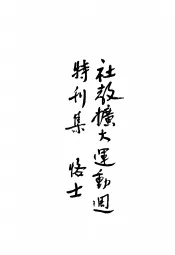 社教擴大運動週
特刊集 悟士